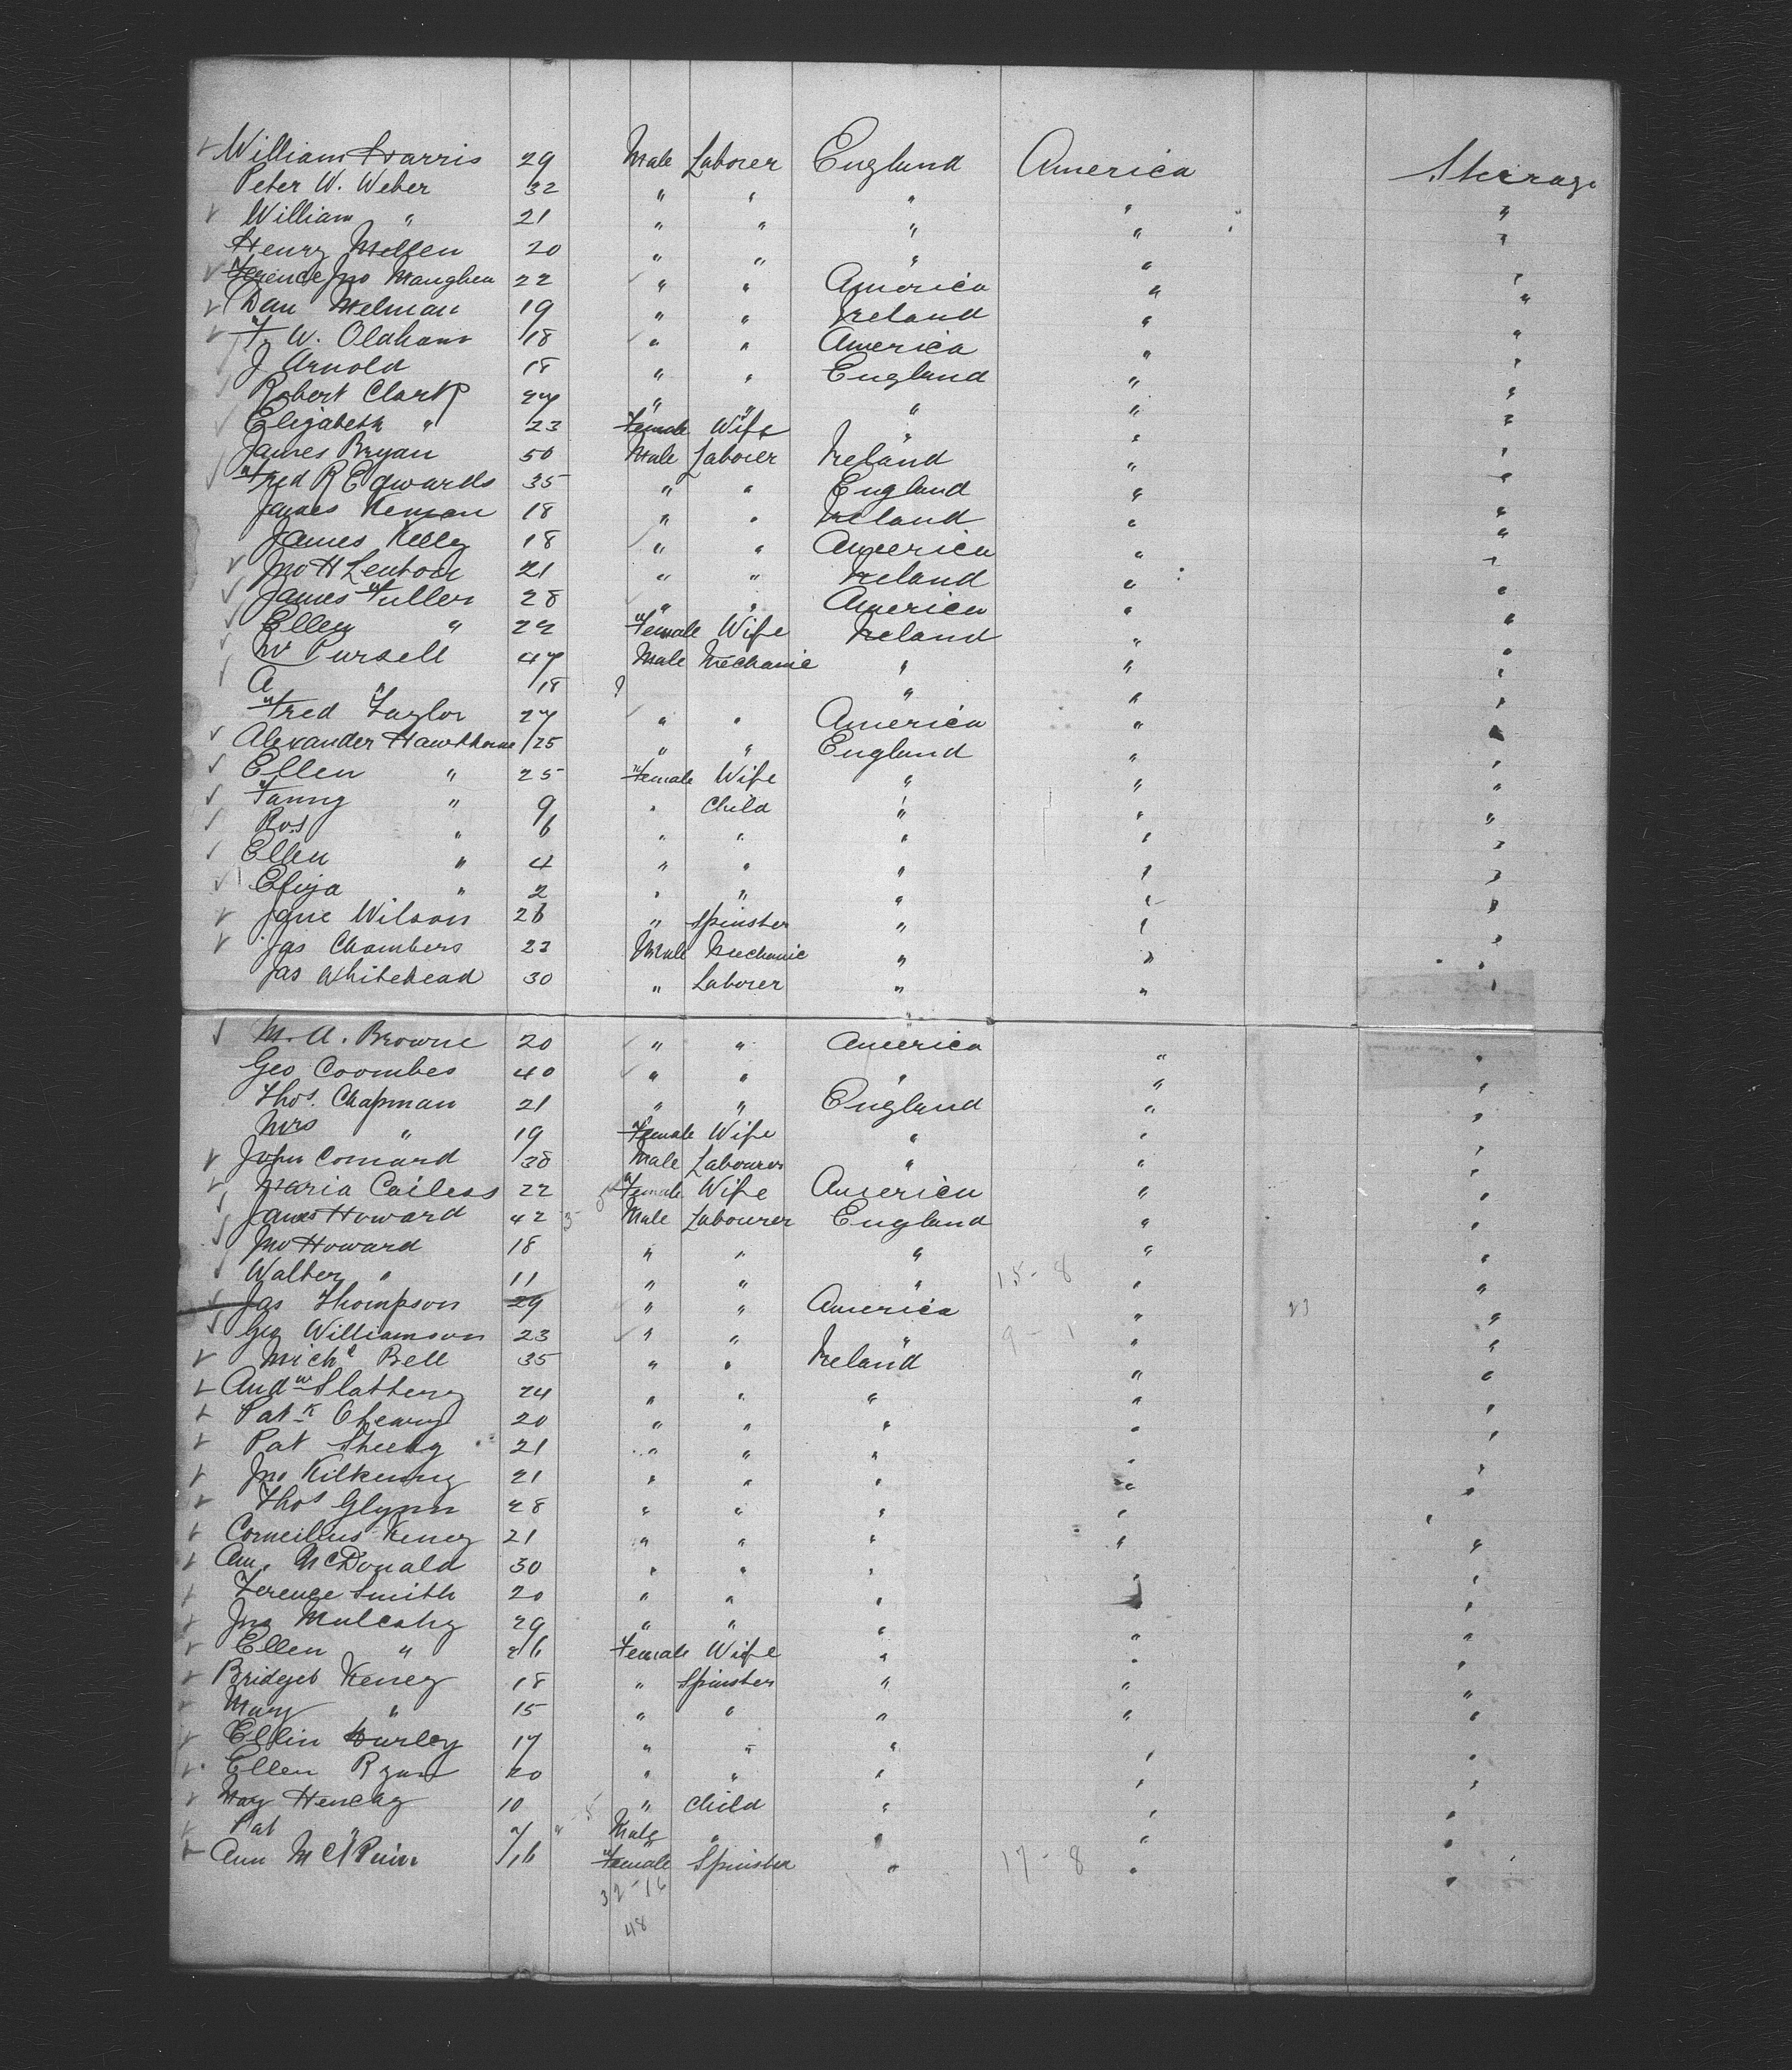 William Harris 29 Male Laborer England America Steerage
Peter W. Weber 32 " " " " "
William " 21 " " " " "
Henry Mellen 20 " " " " "
Terence Jno Manghen 22 " " America " "
Dan Melman 19 " " Ireland " "
F. W. Oldham 18 " " America " "
J Arnold 18 " " England " "
Robert Clark 27 " " " " "
Elizabeth " 23 Female Wife " " "
James Bryan 50 Male Laborer Ireland " "
Fred R Edwards 35 " " England " "
James Kernan 18 " " Ireland " "
James Kelly 18 " " America " "
Jno H Lenton 21 " " Ireland " "
James Fuller 28 " " America " "
Ellen " 22 Female Wife Ireland " "
Wm Pursell 47 Male Mechanic " " "
A " 18 " " "
Fred Taylor 27 " " America " "
Alexander Hawthorne 25 " " England " "
Ellen " 25 Female Wife " " "
Fanny " 9 " Child " " "
Ros " 6 " " " " "
Ellen " 4 " " " " "
Eliza " 2 " " " " "
Jane Wilson 26 " Spinster " " "
Jas Chambers 23 Male Mechanic " " "
Jas Whitehead 30 " Laborer " " "
M. A. Browne 20 " " America " "
Geo Coombes 40 " " " " "
Thos. Chapman 21 " " England " "
Mrs " 19 Female Wife " " "
John Comard 38 Male Labourer " " "
Maria Cailess 22 Female Wife America " "
James Howard 42 Male Labourer England " "
Jno Howard 18 " " " " "
Walter " 11 " " " 15-8 " "
Jas Thompson 29 " " America " "
Geo Williamson 23 " " " 9-1 " "
Michl Bell 35 " " Ireland " "
Andw Slattery 24 " " " " "
Patk Cheary 20 " " " " "
Pat Sheehy 21 " " " " "
Jno Kilkenny 21 " " " " "
Thos Glynn 28 " " " " "
Corneilius Keney 21 " " " " "
Am. McDonald 30 " " " " "
Terence Smith 20 " " " " "
Jno Mulcahy 29 " " " " "
Ellen " 26 Female Wife " " "
Bridget Keney 18 " Spinster " " "
Mary " 15 " " " " "
Ellin Hurley 17 " " " " "
Ellen Ryan 20 " " " " "
May Henehy 10 " Child " " "
Pat " 7 Male " " " "
Ann McNPuin 16 Female Spinster " 17-8 " "
32-16
48